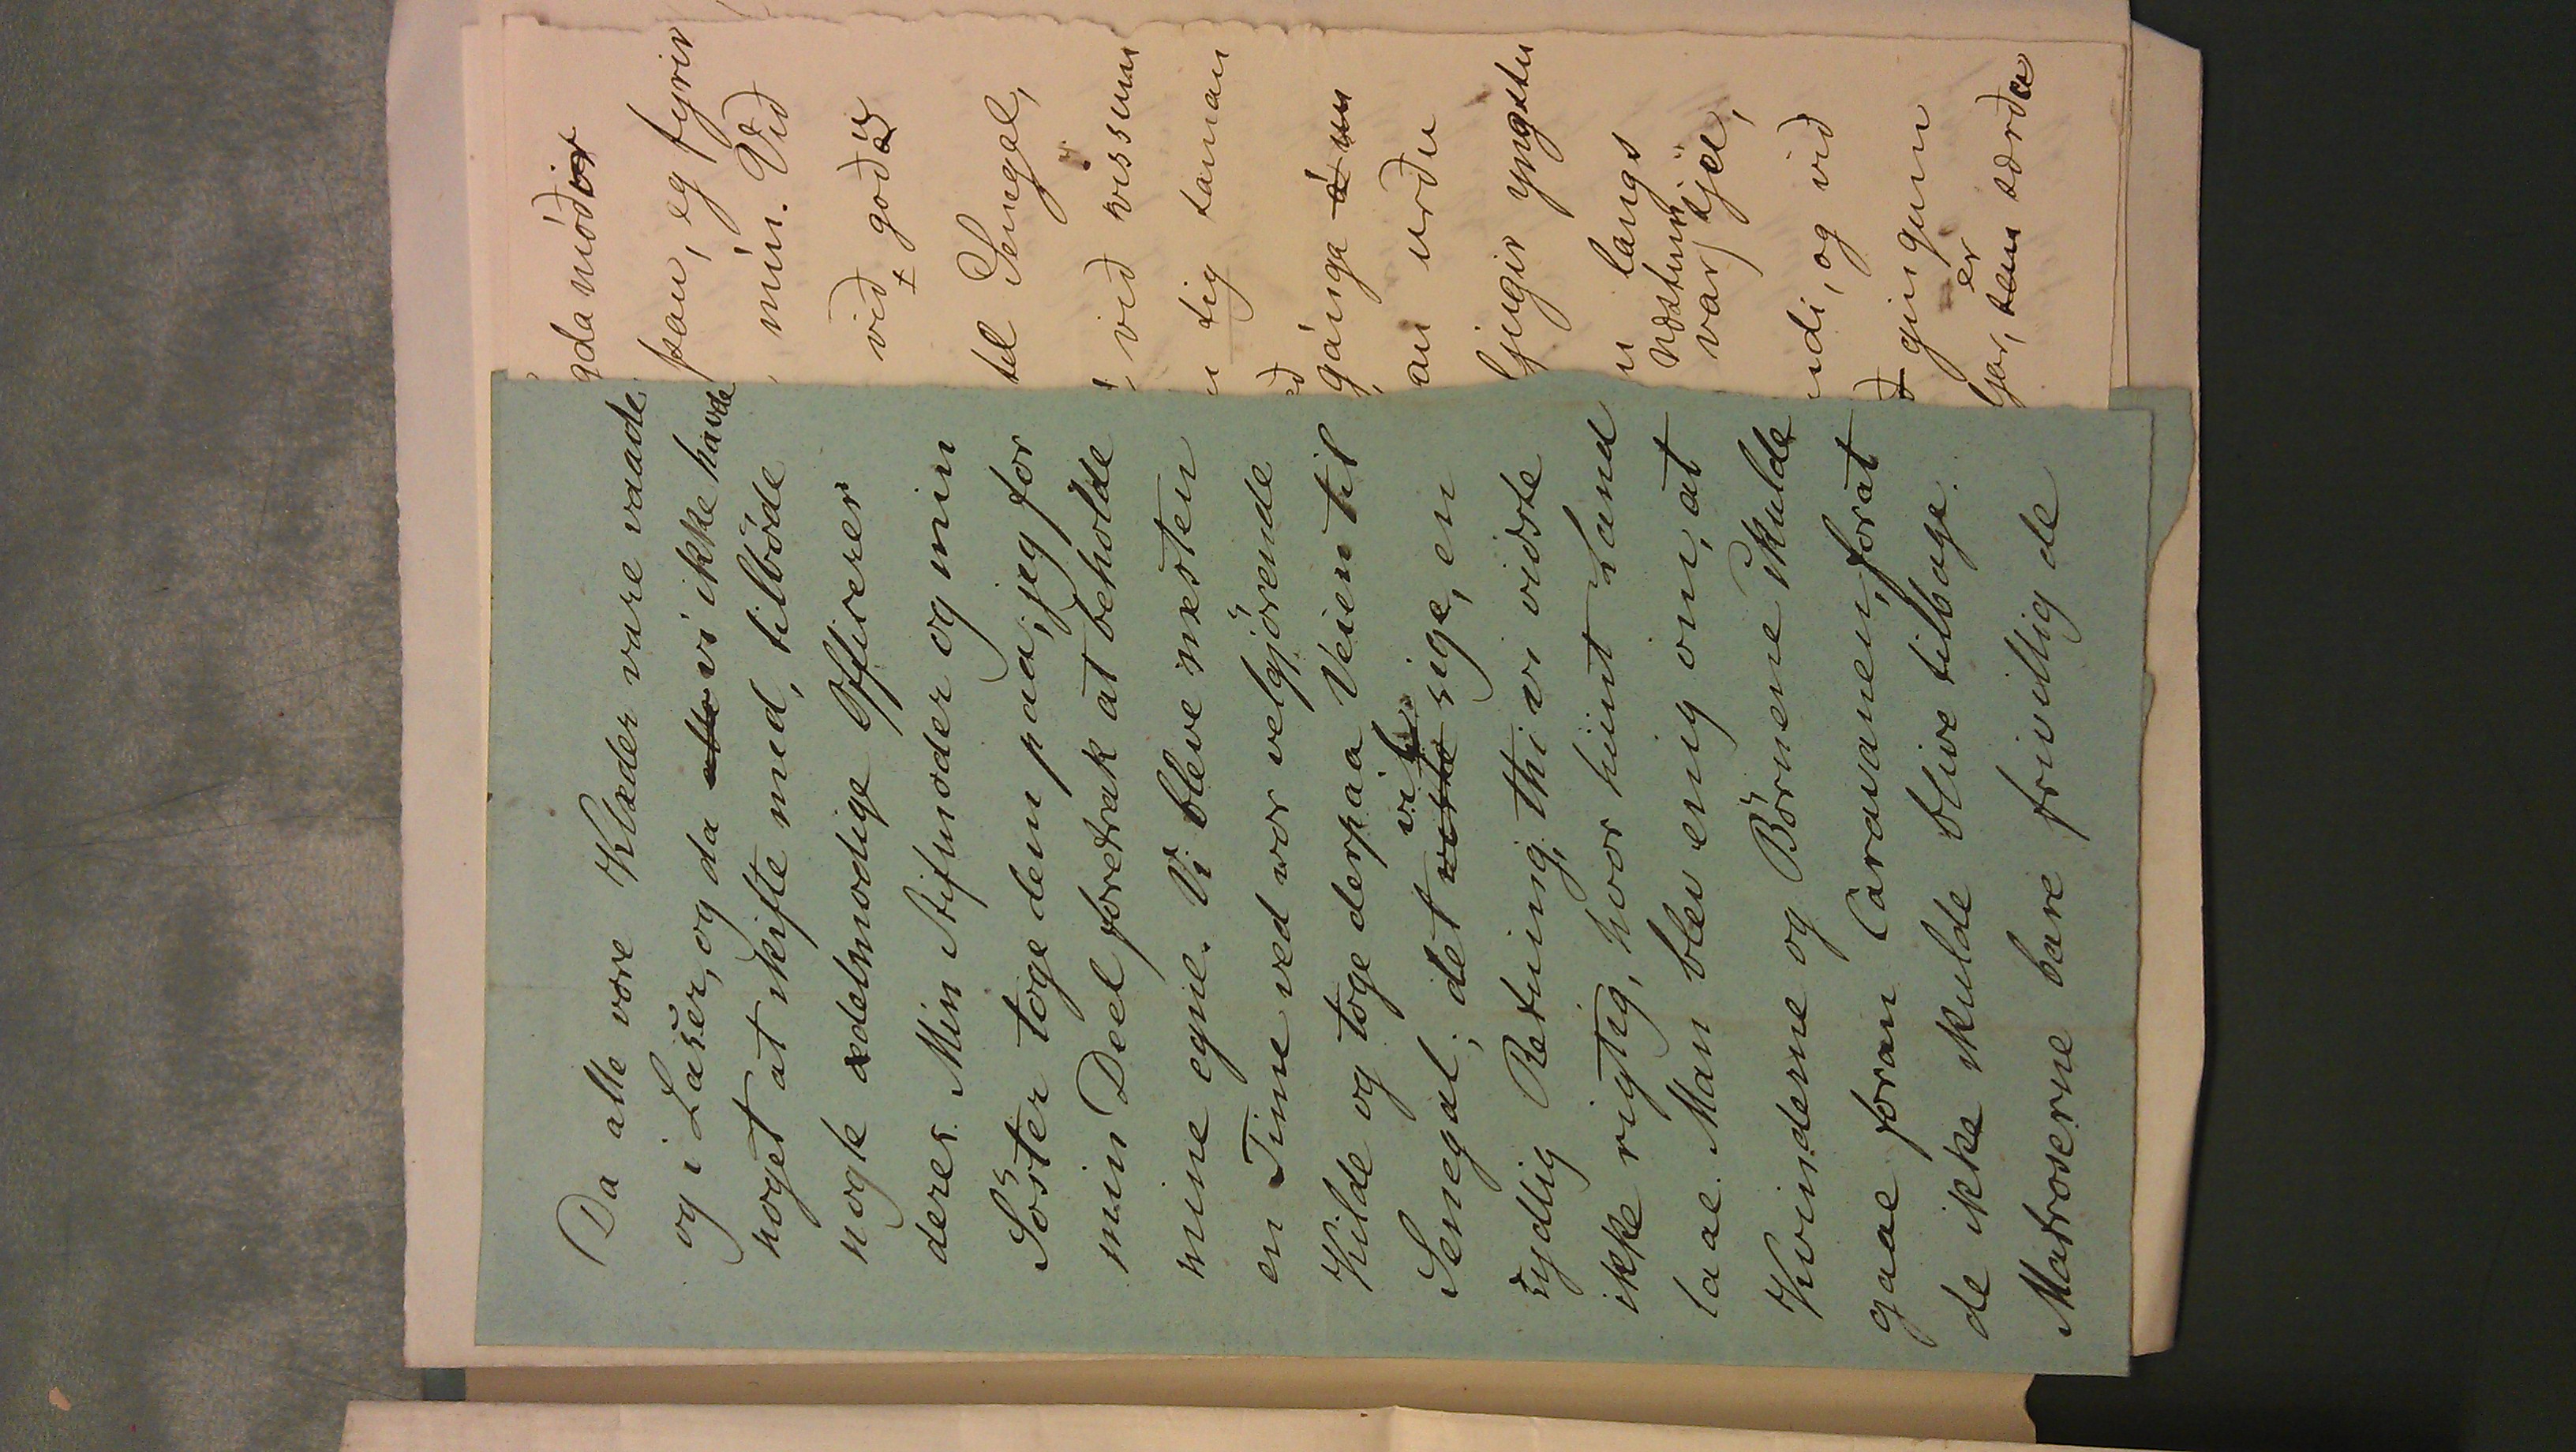 Da alle vore Klæder vare vaade
og i Laser, og da alle vi ikke havde
noget at skifte med, tilböde
nogle ædelmodige Officerer
deres. Min Stifmoder og min
Söster toge dem paa; jeg for
min Deel foretrak at beholde
mine egne. Vi bleve næsten
en Time ved vor velgjörende
Kilde og toge derpaa Veien til
vil
Senegal; det vilde sige, en
sydlig Retning, thi vi vidste
ikke rigtig, hvor hiint Land
laae. Man blev enig om, at
Kvinderne og Börnene skulde
gaae foran Caravanen, forat
de ikke skulde blive tilbage.
Matroserne bare frivillig de
gda móðir
san, eg fyrir
mín. Við
við góðü
tel Sengal,
við vissum
tig saman
gánga á um
an urðu
ljugir yngstu
u langs
næstum
var skjel,
ndi, og við
gingum
er
ljar, sem særða